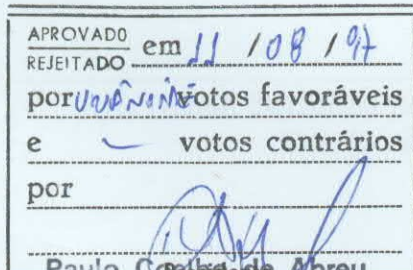 APROVADO em 11 / 08 / 97
REJEITADO
por unânime votos favoráveis
e — votos contrários
por
Paulo Coelho de Abreu